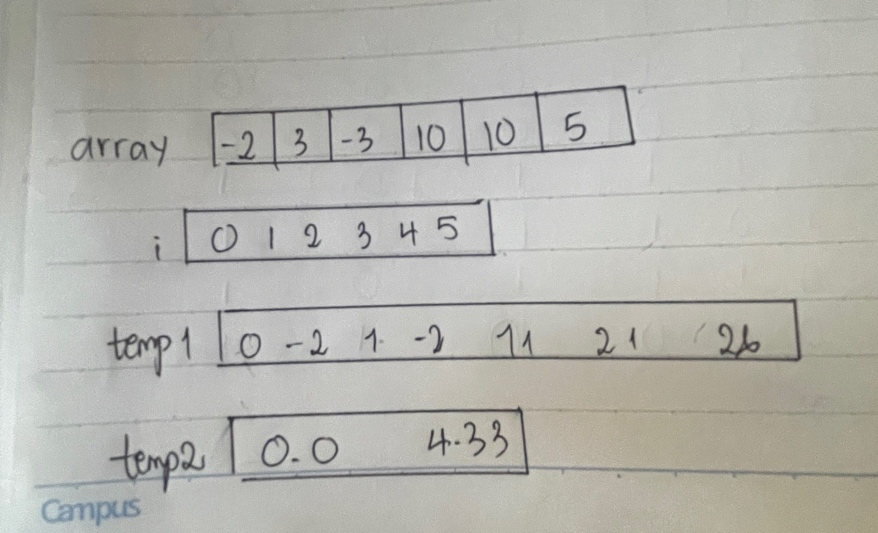 array -2 3 -3 10 10 5
i 0 1 2 3 4 5
temp1 0 -2 1 -2 11 21 26
temp2 0.0 4.33
Campus